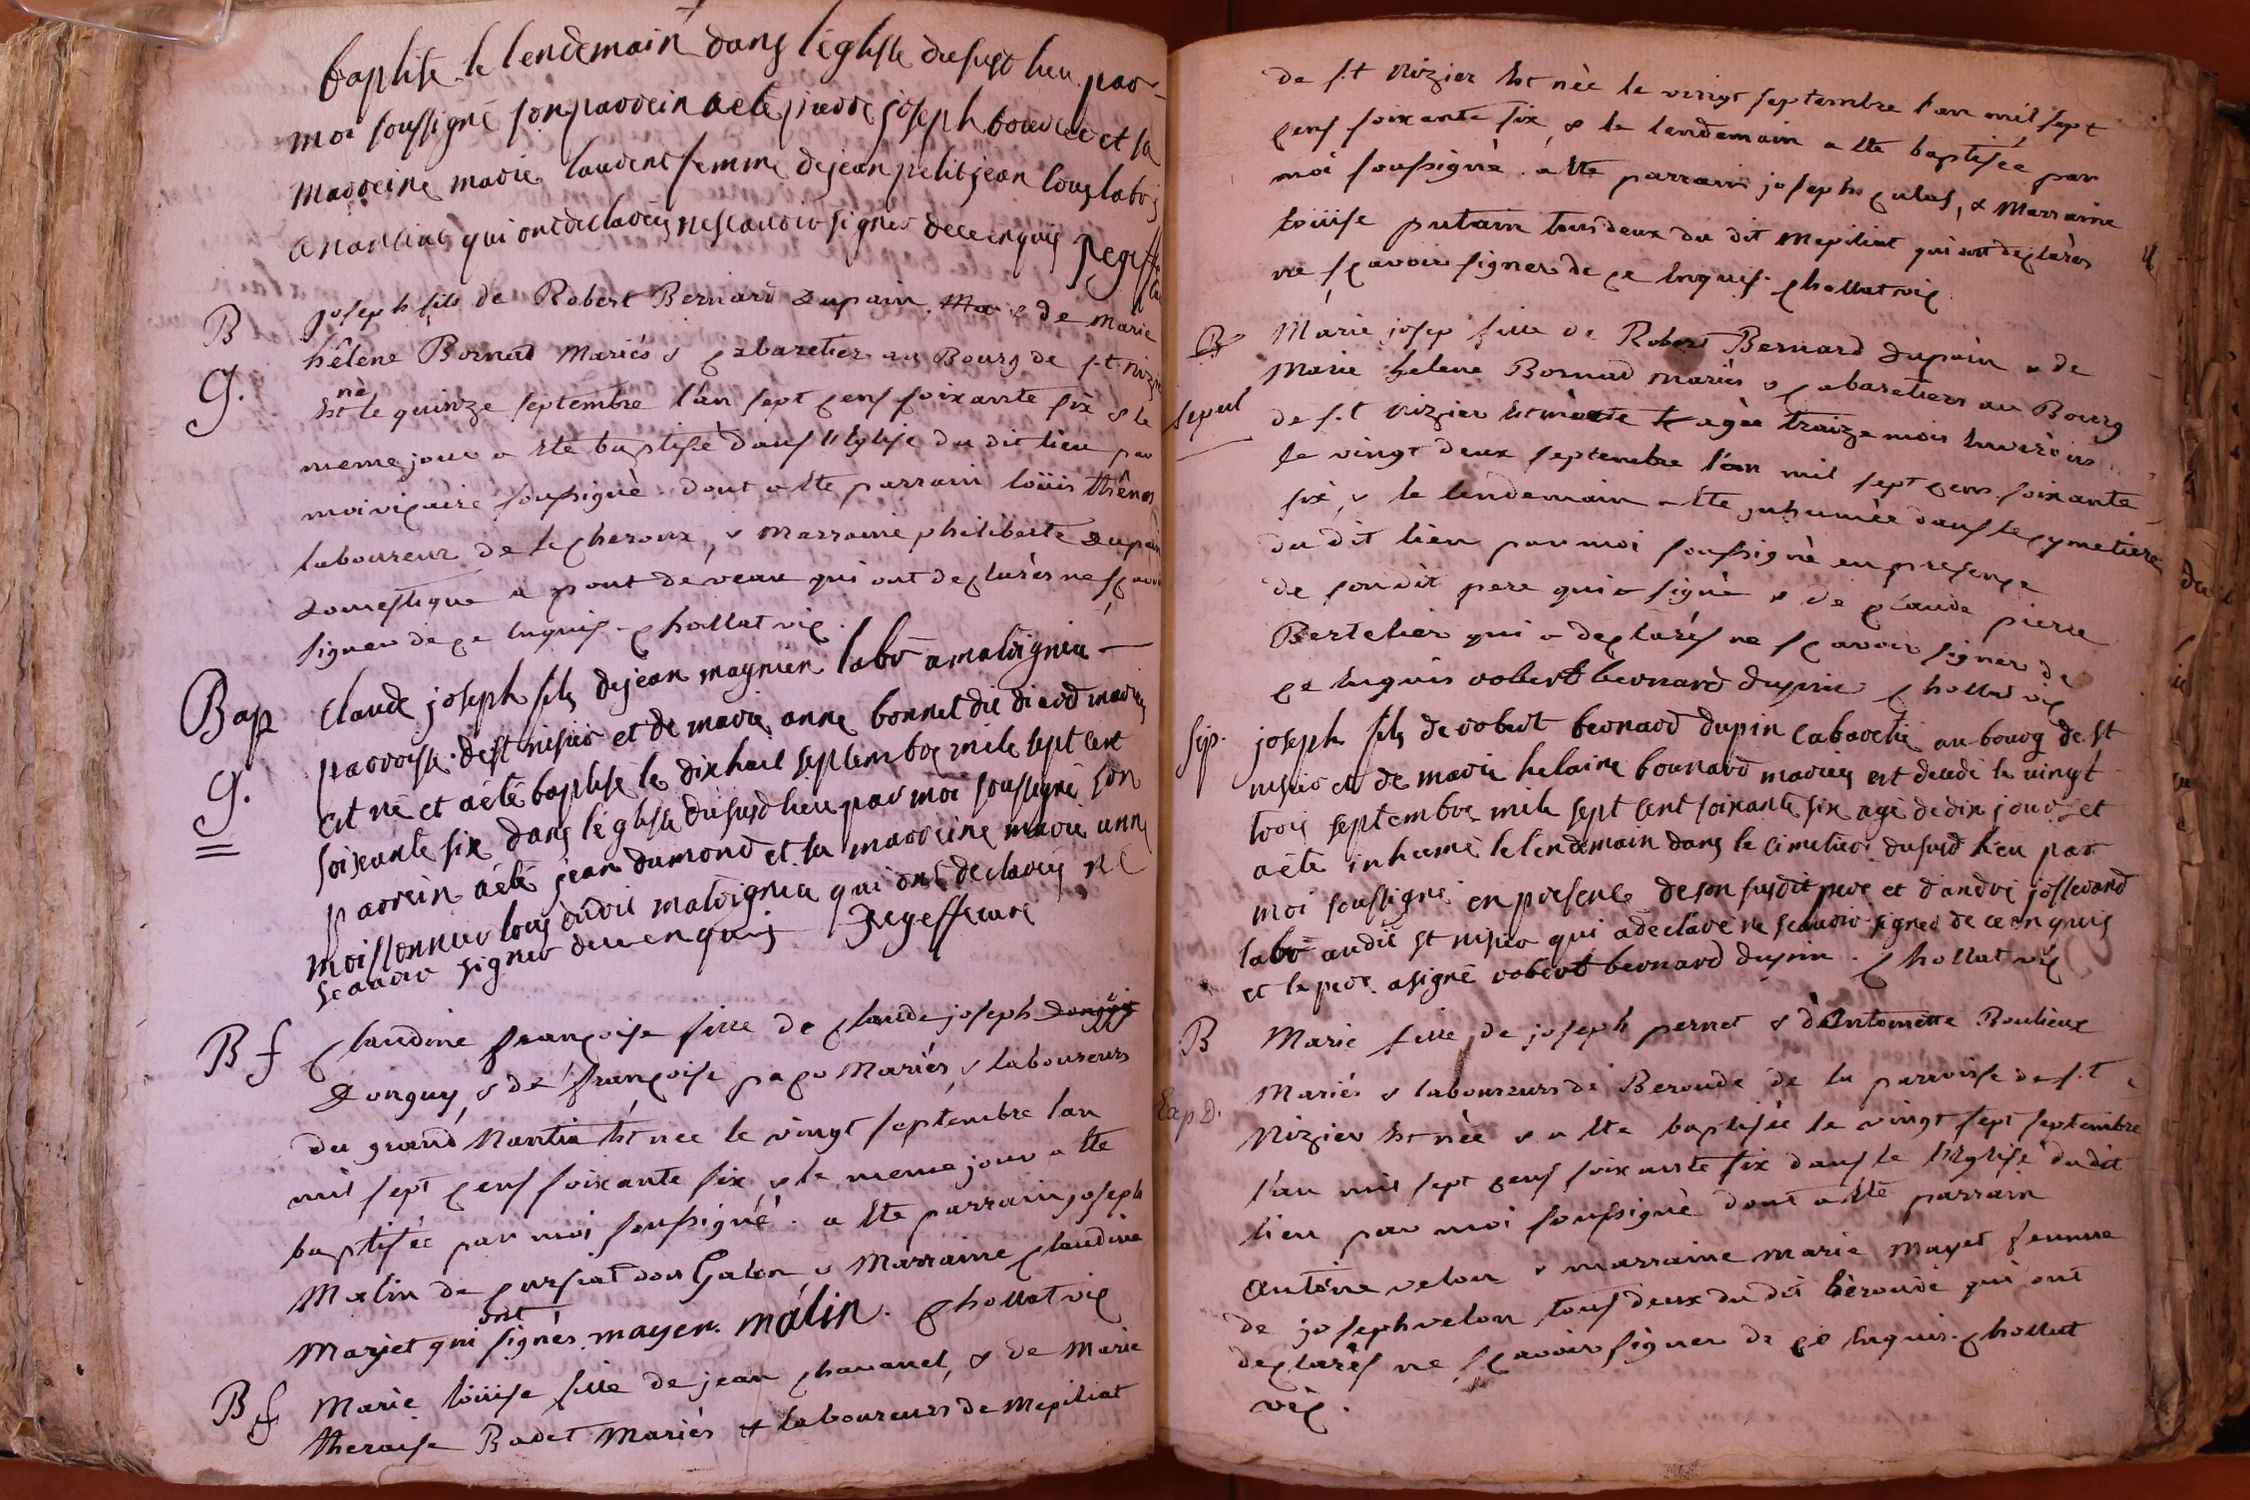 baptisé le lendemain dans l'églisse dususd lieu par
moi soussigné son parrein aeté pierre joseph bouvier et sa
marreine marie laurent femme dejean petitjean tous lab^rs
a nantiat qui ont déclarés ne scauoir signer de ce enquis Regeffe
curé
B
G.
joseph fils de Robert Bernard Dupain & de Marie
hélene Bornad Mariés & cabaretier au Bourg de s.t niz
né
Est le quinze septembre l'an sept cens soixante six & le
meme jour a ete baptisé dans l'Eglise du dit lieu par
moi vicaire soussigné. dont a ete parrain loüis thênos
laboureur de le cheroux, & Marraine philiberte Dupain
Domestique a pont de veau qui ont declarés ne scavoir
signer de ce Enquis. Chollat vic.
Bap
G.
Claude joseph fils dejean magnien labr a malvignia
parroisse de st nisier et de marie anne bonnet dit diard mariés
est né et aété baptisé le dix huit septembre mile sept cent
soixante six dans l'églisse dususd lieu par moi soussigné son
parrein aété jean dumond et sa marreine marie anne
moissonnier tous dudit malvignia qui ont declarés ne
scauoir signer de ce enquis Regeffe curé
B f
Claudine françoise fille de Claude joseph Donguy
Donguy, & de françoise pago Mariés & laboureurs
du grand Nantia Est nee le vingt septembre l'an
mil sept cens soixante six & le meme jour a ete
baptisée par moi soussigné. a ete parrain joseph
Malin de curciat don Galon & Marraine Claudine
ont
Marjet qui signés. mayer. malin. Chollat vic
B f
Marie loüise fille de jean chavanel, & de Marie
therese Badet Mariés & laboureurs de Mepiliat
de s.t Nizier Est née le vingt septembre l'an mil sept
cens soixante six, & le lendemain a ete baptisée par
moi soussigné. a ete parrain joseph culas, & Marraine
loüise putain tous deux du dit Mepiliat qui ont declarés
ne scavoir signer de ce Enquis. Chollat vic
B
sepul
Marie josep fille de Robert Bernard Dupain & de
Marie helene Bornad mariés & cabaretiers au Bourg
de s.t Nizier Est morte agée traize mois Environ
le vingt deux septembre l'an mil sept cens soixante
six, & le lendemain a ete inhumée dans le cymetiere
du dit lieu par moi soussigné en presence
de son dit pere qui a signé & de Claude pierre
Bertelier qui a declarés ne scavoir signer de
ce Enquis robert bernard dupin Chollat vic
sep.
joseph fils de robert bernard dupin cabaretié au bourg de st
nisier et de marie helaine bournard mariés est decedé le vingt
trois septembre mile sept cent soixante six agé de dix jour et
aéte inhumé le lendemain dans le cimetiere dususd lieu par
moi soussigné en presence de son susdit pere et d'andré josserand
labr audit st nisier qui a declaré ne scauoir signer de ce enquis
et le pere asigné robert bernard dupin. Chollat vic
B
Marie fille de joseph pernet & d'Antoinette Boulieux
Mariés & laboureurs de Beroude de la parroisse de s.t
Exp D.
Nizier Est née & a ete baptisée le vingt sept septembre
l'an mil sept cens soixante six dans le l'Eglise du dit
lieu par moi soussigné dont a ete parrain
Antoine velon & marraine marie mayet femme
de joseph velon tous deux du dit béroude qui ont
declarés ne scavoir signer de ce Enquis. Chollat
vic.